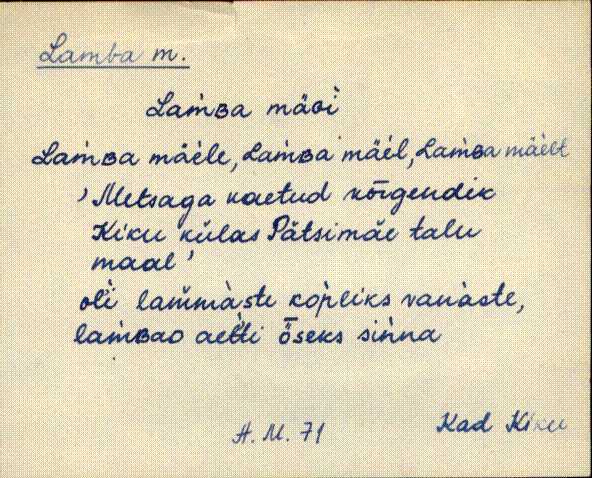 Lamba m.
Lam̀ʙa mäɢi
Lam̀ʙa mäèle, Lam̀ʙa mäèl, Lam̀ʙa mäèlt
'Metsaga kaetud kõrgendik
Kiku külas Pätsimäe talu
maal'
oĺi lam̆màste kop̀liks vanàste,
lam̀ʙaᴅ aet̆ti ȫseks sińna
A. M. 71 Kad Kiku